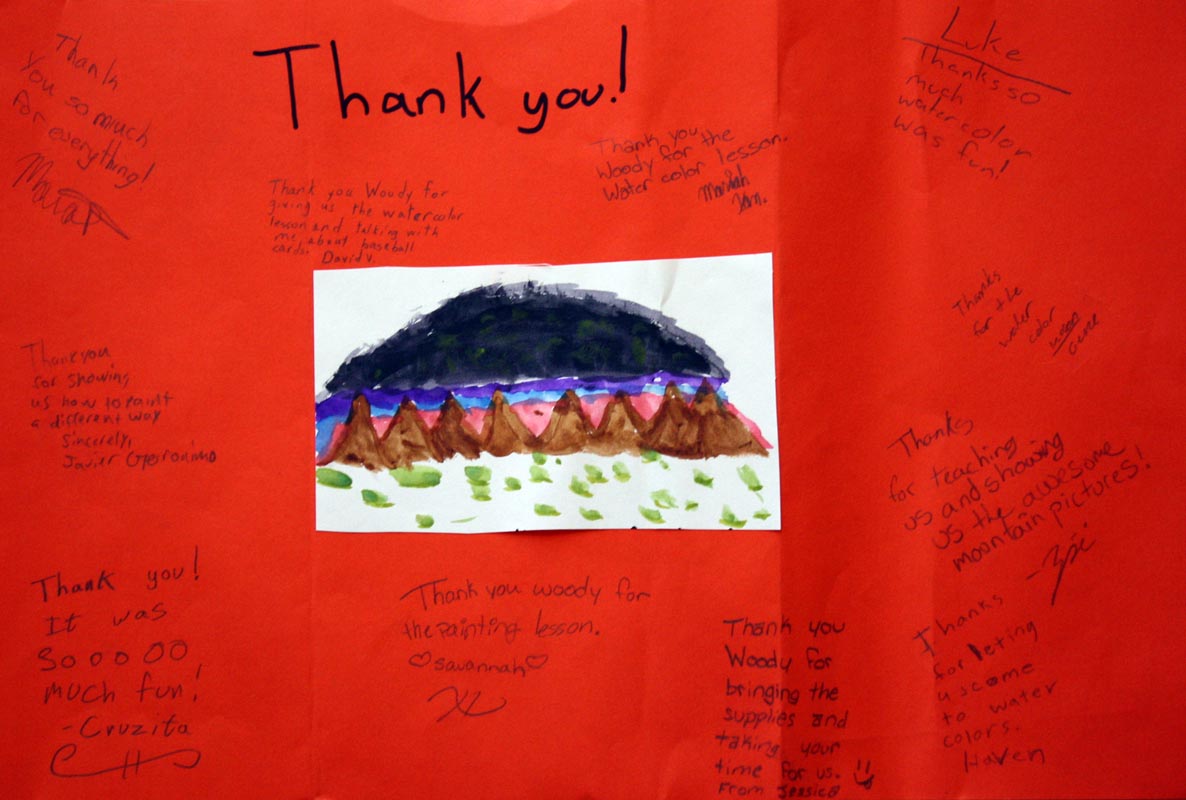 Thank you!
Thank
You so much
for everything!
Luke
Thanks so
much
watercolor
was fun!
Thank you
Woody for the
Water color lesson.
Thank you Woody for
giving us the watercolor
lesson and talking with
me about baseball
cards. David V.
Thanks
for the
water
color
Thank you
for showing
us how to paint
a different way
Sincerely,
Javier Geronimo
Thanks
for teaching
us and showing
us the awesome
mountain pictures!
Thank you!
It was
SooooO
much fun!
-Cruzita
Thank you woody for
the painting lesson.
♡savannah♡
Thank you
Woody for
bringing the
supplies and
taking your
time for us.
From Jessica
Thanks
for leting
us come
to water
colors.
Haven